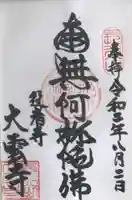 奉拝
令和三年八月二日
南無阿弥陀佛
大雲寺